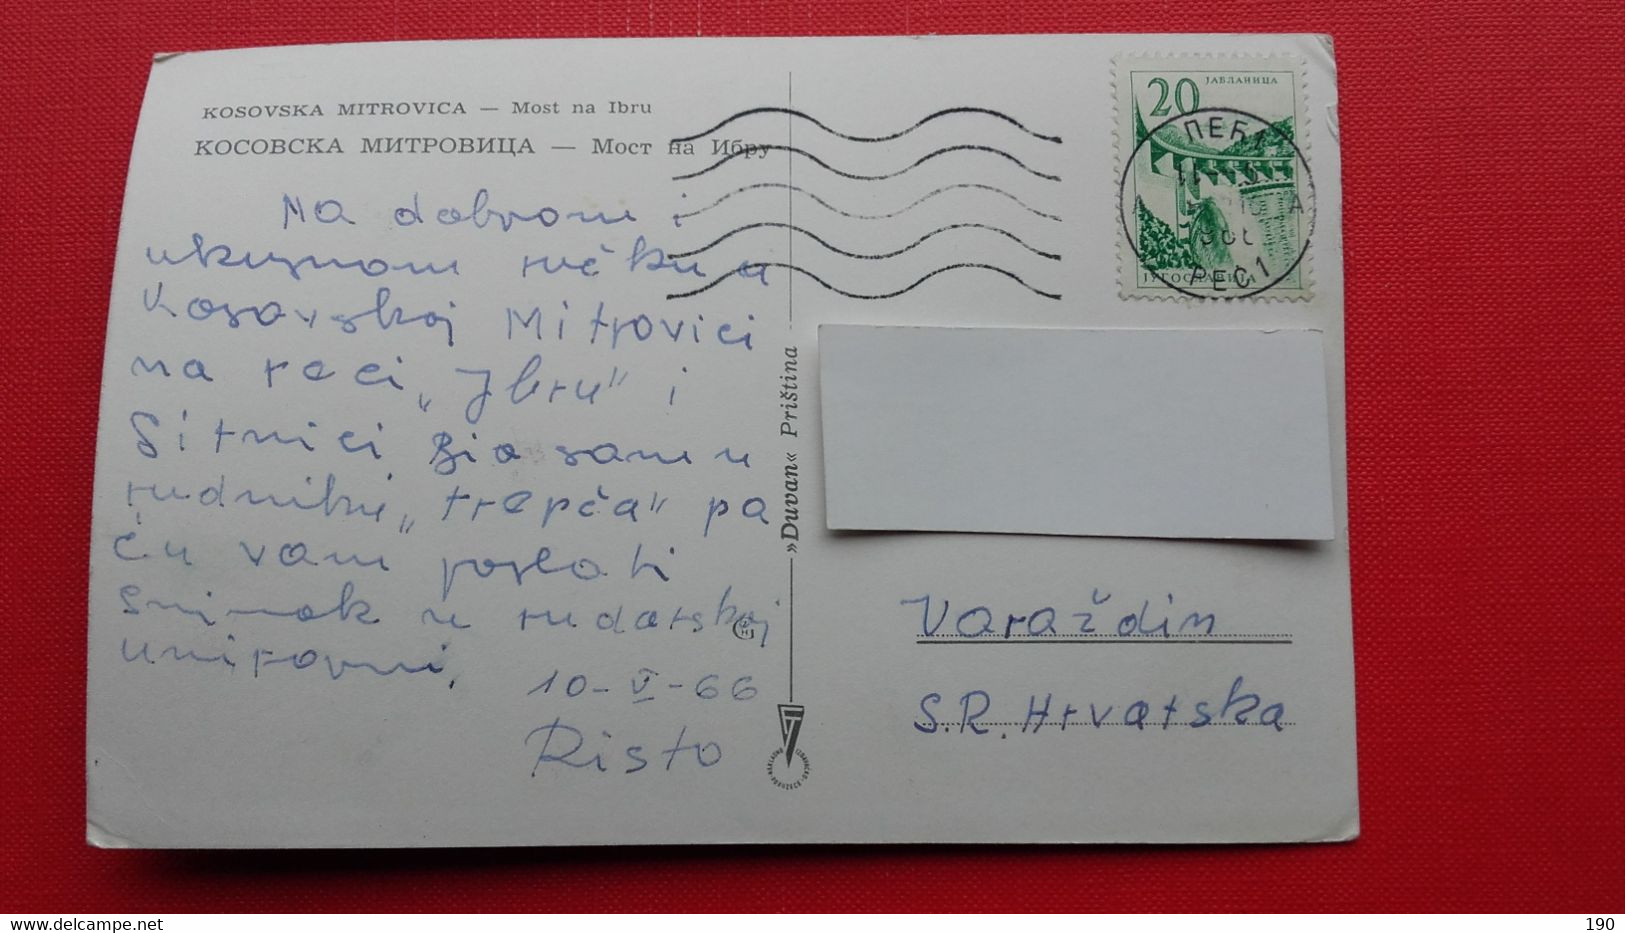 KOSOVSKA MITROVICA — Most na Ibru
КОСОВСКА МИТРОВИЦА — Мост на Ибру
Na dobrom i
ukusnom ručku u
Kosovskoj Mitrovici
na reci „Ibru" i
Sitnici. Bio sam u
rudniku „trepča" pa
ću vam poslati
snimak u rudarskoj
uniformi.
10-V-66
Risto
»Duvan« Priština
20
ЈАБЛАНИЦА
ЈУГОСЛАВИЈА
ПЕЋ 1
A A
PEĆ 1
Varaždin
S.R. Hrvatska
190